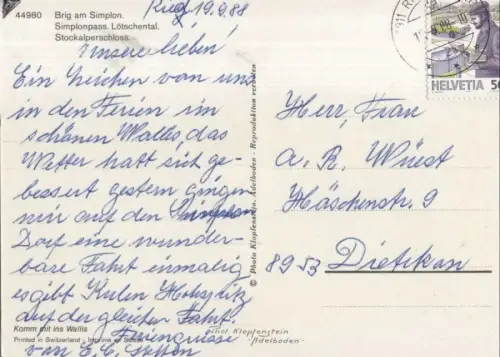 44980 Brig am Simplon.
Simplonpass. Lötschental.
Stockalperschloss.
19.9.88
Unsere Lieben!
Ein Zeichen von uns
in den Ferien im
schönen Wallis, das
Wetter hatt sich ge-
bessert gestern gingen
wir auf den Simplon
Dorf eine wunder-
bare Fahrt einmalig
es gibt
auf der gleichen Fahrt.
Feriengrüsse
von E.E.
Komm mit ins Wallis
Printed in Switzerland
© Photo Klopfenstein, Adelboden - Reproduktion verboten
HELVETIA
Herr, Frau
A. R. Wüest
Häschenstr. 9
8953 Dietikon
Klopfenstein
Adelboden